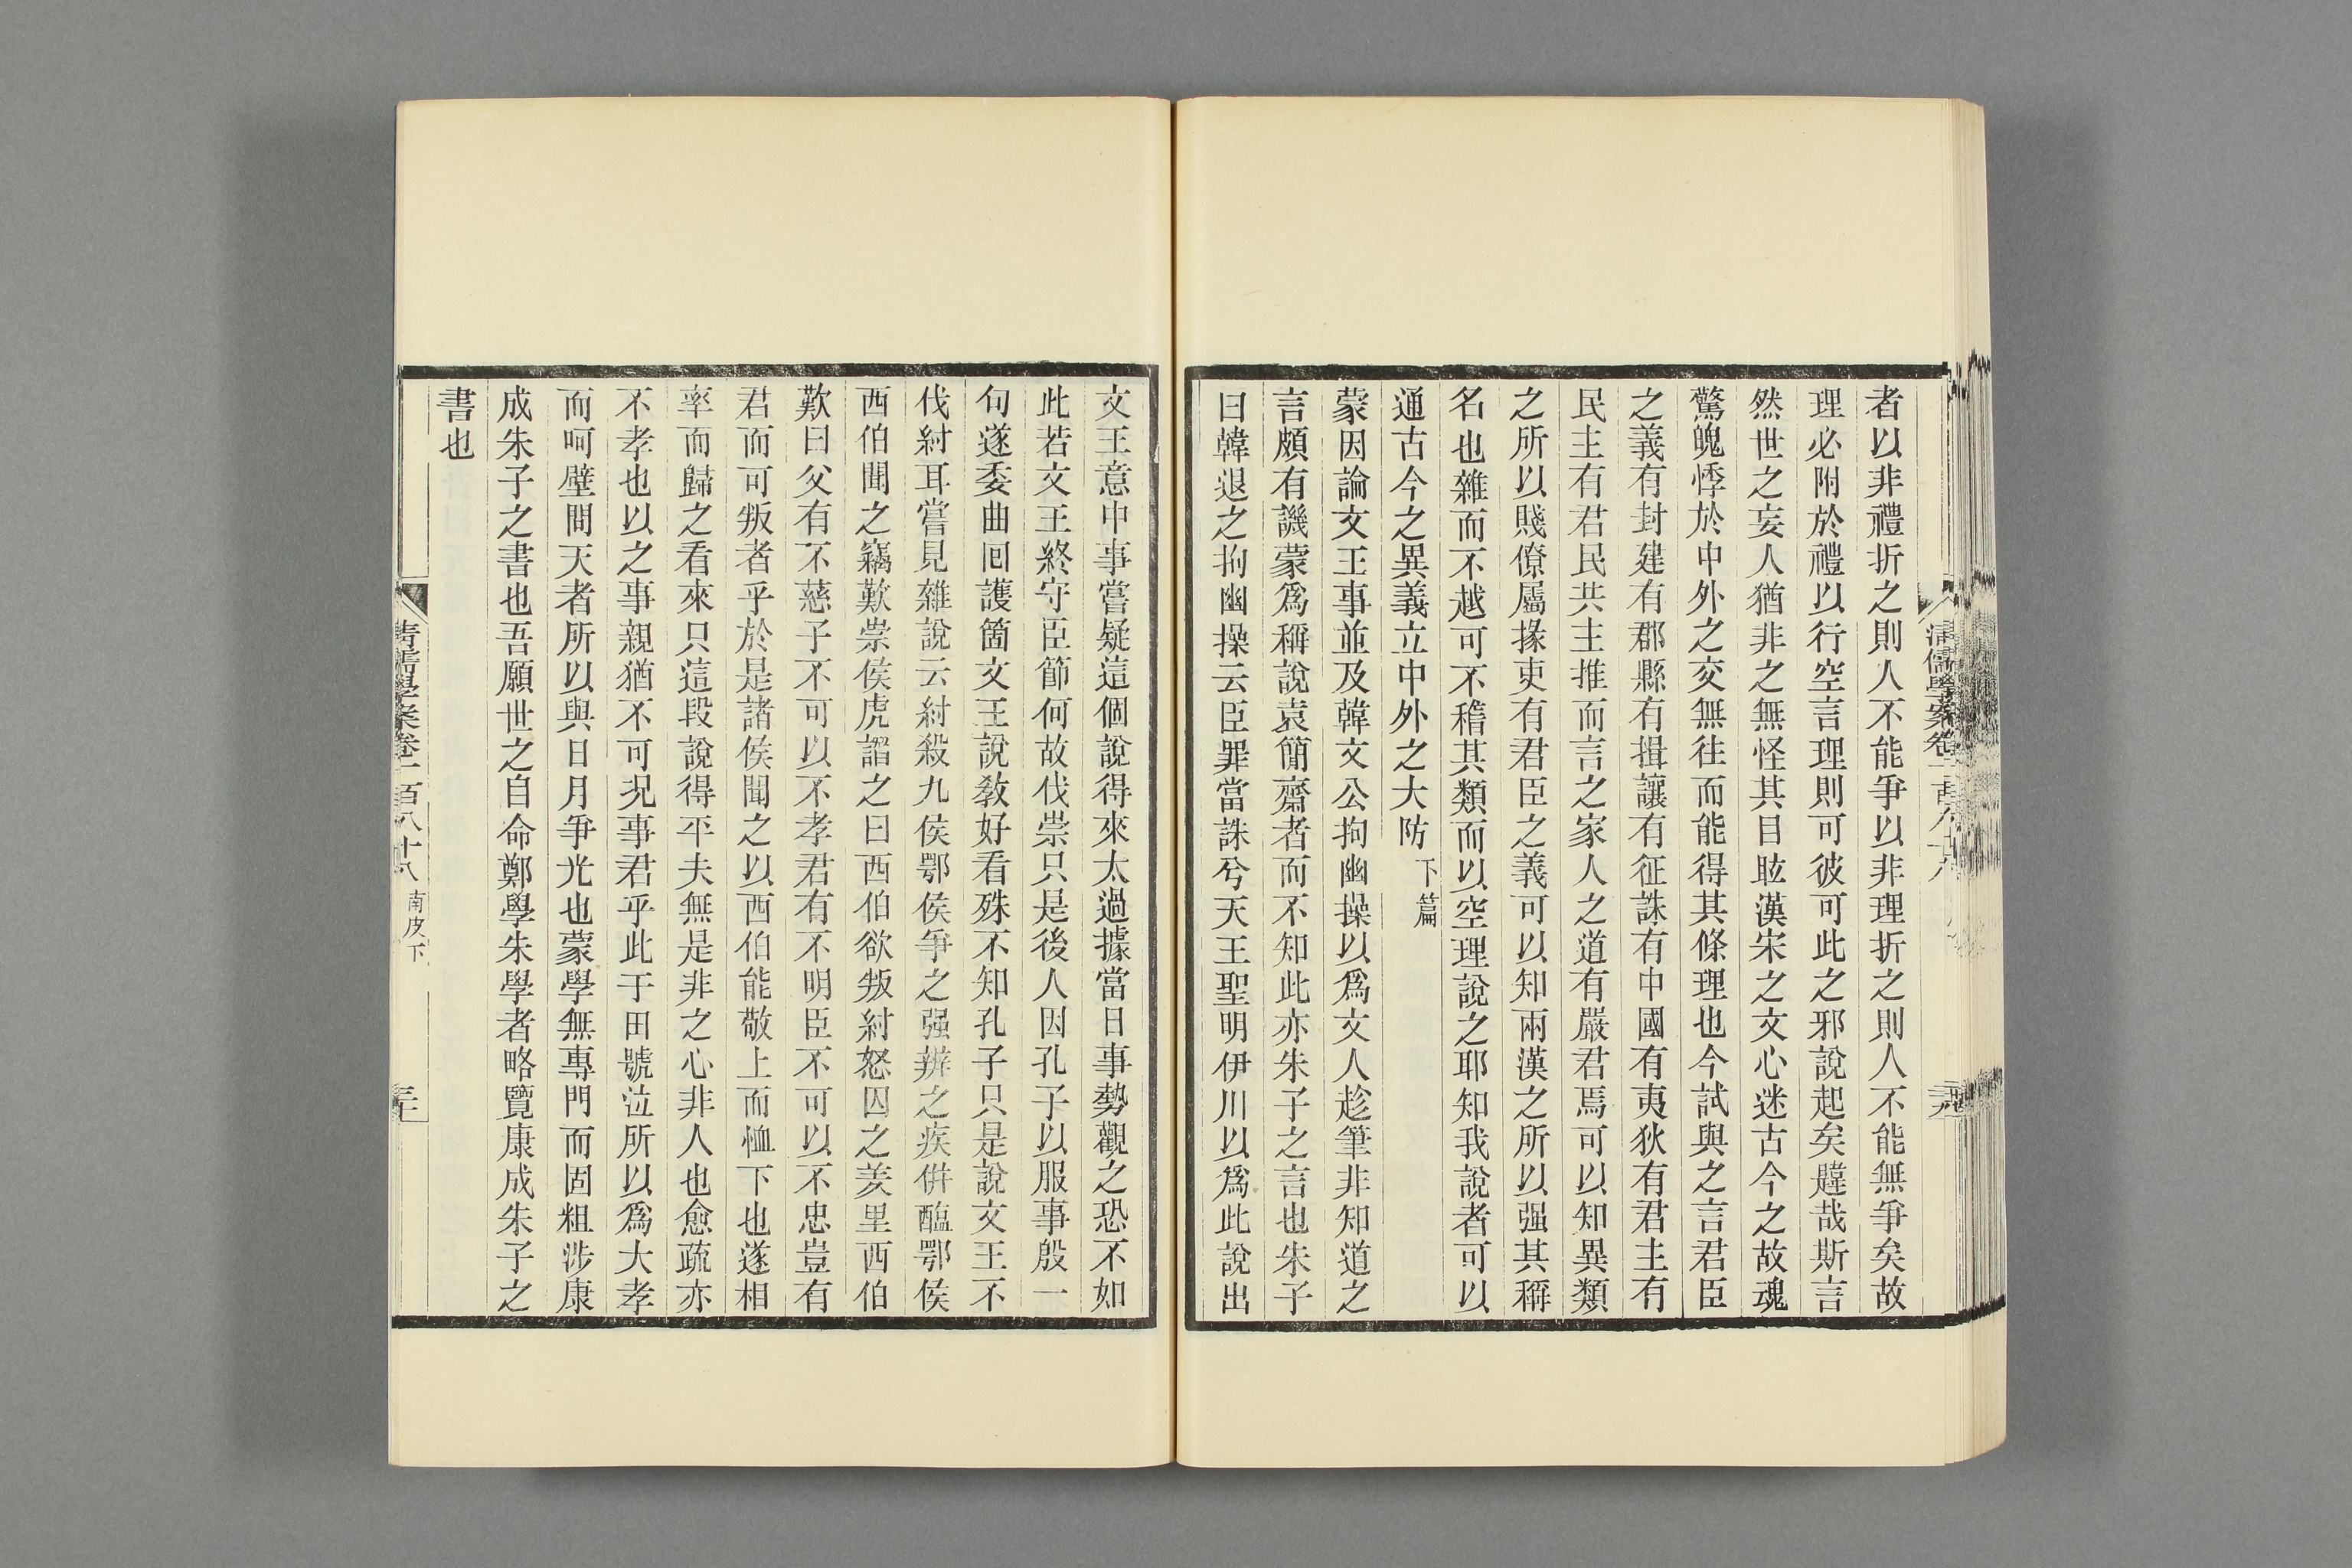 者以非禮折之則人不能爭以非理折之則人不能無爭矣故
理必附於禮以行空言理則可彼可此之邪說起矣韙哉斯言
然世之妄人猶非之無怪其目眩漢宋之文心迷古今之故魂
驚魄悸於中外之交無往而能得其條理也今試與之言君臣
之義有封建有郡縣有揖讓有征誅有中國有夷狄有君主有
民主有君民共主推而言之家人之道有嚴君焉可以知異類
之所以賤僚屬掾吏有君臣之義可以知兩漢之所以强其稱
名也雜而不越可不稽其類而以空理說之耶知我說者可以
通古今之異義立中外之大防下篇
蒙因論文王事並及韓文公拘幽操以爲文人趁筆非知道之
言頗有譏蒙爲稱說袁簡齋者而不知此亦朱子之言也朱子
曰韓退之拘幽操云臣罪當誅兮天王聖明伊川以爲此說出
文王意中事嘗疑這個說得來太過據當日事勢觀之恐不如
此若文王終守臣節何故伐崇只是後人因孔子以服事殷一
句遂委曲回護箇文王說敎好看殊不知孔子只是說文王不
伐紂耳嘗見雜說云紂殺九侯鄂侯爭之强辨之疾併醢鄂侯
西伯聞之竊歎崇侯虎譖之曰西伯欲叛紂怒囚之羑里西伯
歎曰父有不慈子不可以不孝君有不明臣不可以不忠豈有
君而可叛者乎於是諸侯聞之以西伯能敬上而恤下也遂相
率而歸之看來只這段說得平夫無是非之心非人也愈疏亦
不孝也以之事親猶不可況事君乎此于田號泣所以爲大孝
而呵壁問天者所以與日月爭光也蒙學無專門而固粗涉康
成朱子之書也吾願世之自命鄭學朱學者略覽康成朱子之
書也
清儒學案卷一百八十八 南皮下